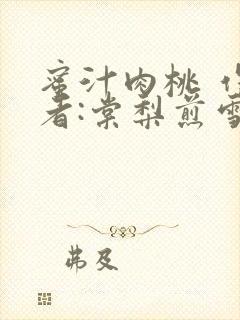 蜜汁肉桃 作
者:棠梨煎雪
弗及